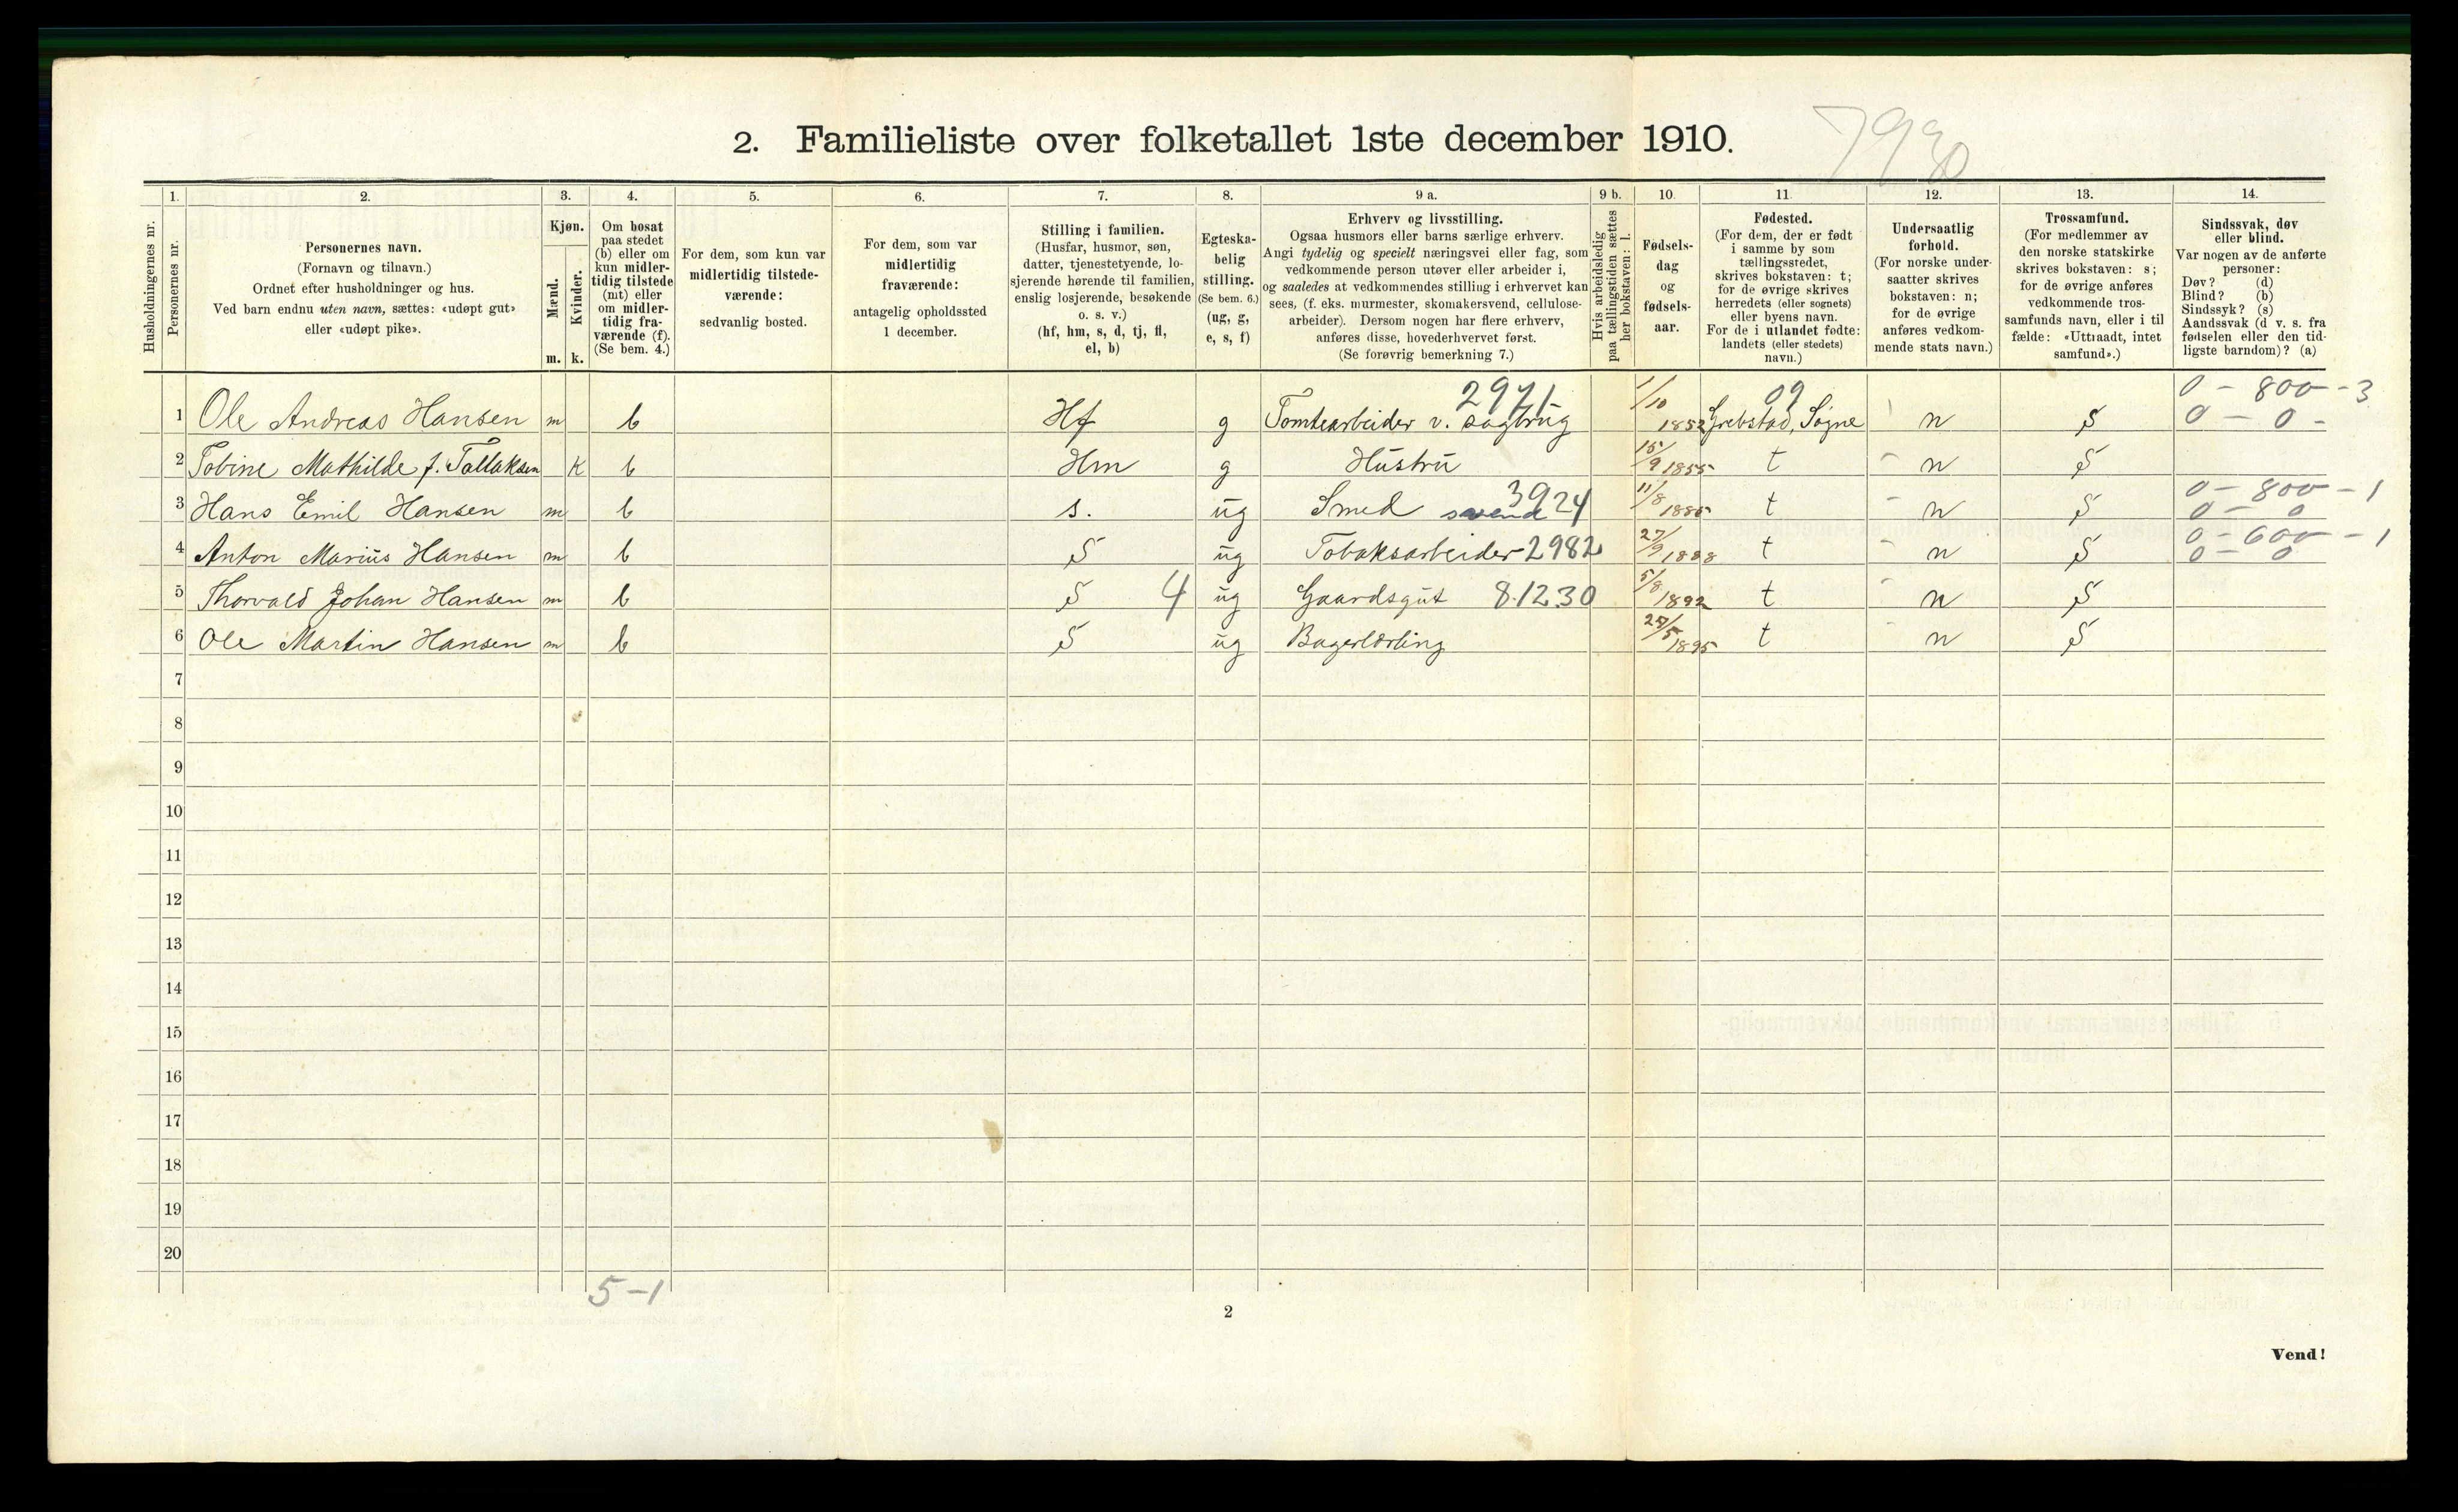 7930
2. Familieliste over folketallet 1ste december 1910.
1. 2. 3. 4. 5. 6. 7. 8. 9 a. 9 b. 10. 11. 12. 13. 14.
Husholdningernes nr.
Personernes nr.
Personernes navn.
(Fornavn og tilnavn.)
Ordnet efter husholdninger og hus.
Ved barn endnu uten navn, sættes: «udøpt gut»
eller «udøpt pike».
Kjøn.
Mænd.
Kvinder.
m. k.
Om bosat
paa stedet
(b) eller om
kun midler-
tidig tilstede
(mt) eller
om midler-
tidig fra-
værende (f).
(Se bem. 4.)
For dem, som kun var
midlertidig tilstede-
værende:
sedvanlig bosted.
For dem, som var
midlertidig
fraværende:
antagelig opholdssted
1 december.
Stilling i familien.
(Husfar, husmor, søn,
datter, tjenestetyende, lo-
sjerende hørende til familien,
enslig losjerende, besøkende
o. s. v.)
(hf, hm, s, d, tj, fl,
el, b)
Egteska-
belig
stilling.
(Se bem. 6.)
(ug, g,
e, s, f)
Erhverv og livsstilling.
Ogsaa husmors eller barns særlige erhverv.
Angi tydelig og specielt næringsvei eller fag, som
vedkommende person utøver eller arbeider i,
og saaledes at vedkommendes stilling i erhvervet kan
sees, (f. eks. murmester, skomakersvend, cellulose-
arbeider). Dersom nogen har flere erhverv,
anføres disse, hovederhvervet først.
(Se forøvrig bemerkning 7.)
Hvis arbeidsledig
paa tællingstiden sættes
her bokstaven: l.
Fødsels-
dag
og
fødsels-
aar.
Fødested.
(For dem, der er født
i samme by som
tællingsstedet,
skrives bokstaven: t;
for de øvrige skrives
herredets (eller sognets)
eller byens navn.
For de i utlandet fødte:
landets (eller stedets)
navn.)
Undersaatlig
forhold.
(For norske under-
saatter skrives
bokstaven: n;
for de øvrige
anføres vedkom-
mende stats navn.)
Trossamfund.
(For medlemmer av
den norske statskirke
skrives bokstaven: s;
for de øvrige anføres
vedkommende tros-
samfunds navn, eller i til
fælde: «Uttraadt, intet
samfund».)
Sindssvak, døv
eller blind.
Var nogen av de anførte
personer:
Døv? (d)
Blind? (b)
Sindssyk? (s)
Aandssvak (d v. s. fra
fødselen eller den tid-
ligste barndom)? (a)
2971 09 0 - 800 - 3
1 Ole Andreas Hansen m b Hf g Tomtearbeider v. sagbrug 1/10 1852 Grebstad, Søgne n S 0 - 0 -
2 Tobine Mathilde f. Tallaksen k b Hm g Hustru 15/9 1855 t n S
3 Hans Emil Hansen m b s. ug Smed svend 3924 11/8 1885 t n S 0 - 800 - 1
0 - 0
4 Anton Marius Hansen m b S ug Tobaksarbeider 2982 27/9 1888 t n S 0 - 600 - 1
0 - 0
5 Thorvald Johan Hansen m b S 4 ug Gaardsgut 8.12.30 5/8 1892 t n S
6 Ole Martin Hansen m b S ug Bagerlærling /5 1895 t n S
7
8
9
10
11
12
13
14
15
16
17
18
19
20
5-1
2
Vend!